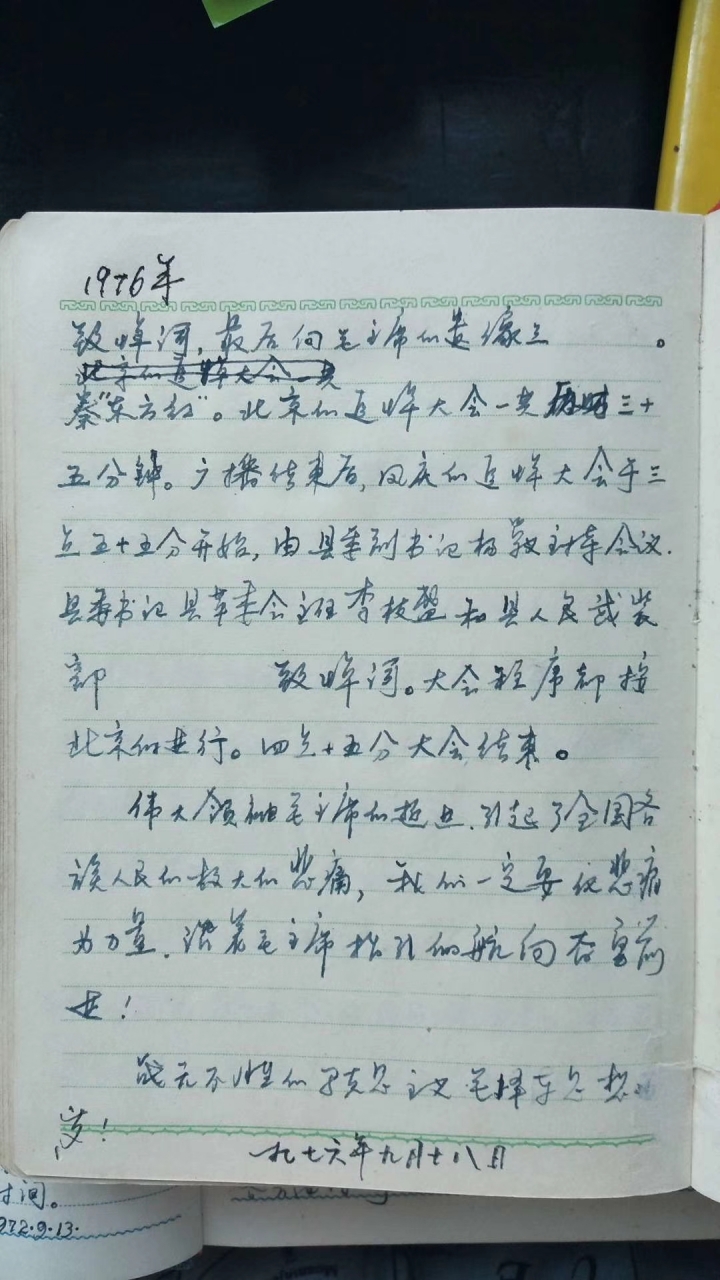 1976年
致悼词,最后向毛主席的遗像三 。
北京的追悼大会一共
奏"东方红"。北京的追悼大会一共 三十
五分钟。广播结束后,凤庆的追悼大会于三
点五十五分开始,由县委副书记杨 主持会议.
县委书记县革委会主任李枝盤和县人民武装
部 致悼词。大会程序都按
北京的进行。四点十五分大会结束。
伟大领袖毛主席的逝世.引起了全国各
族人民的极大的悲痛,我们一定要化悲痛
为力量.沿着毛主席指引的航向奋勇前
进!
战无不胜的马克思主义毛泽东思想
岁!
一九七六年九月十八日
时间。
1972.9.13.